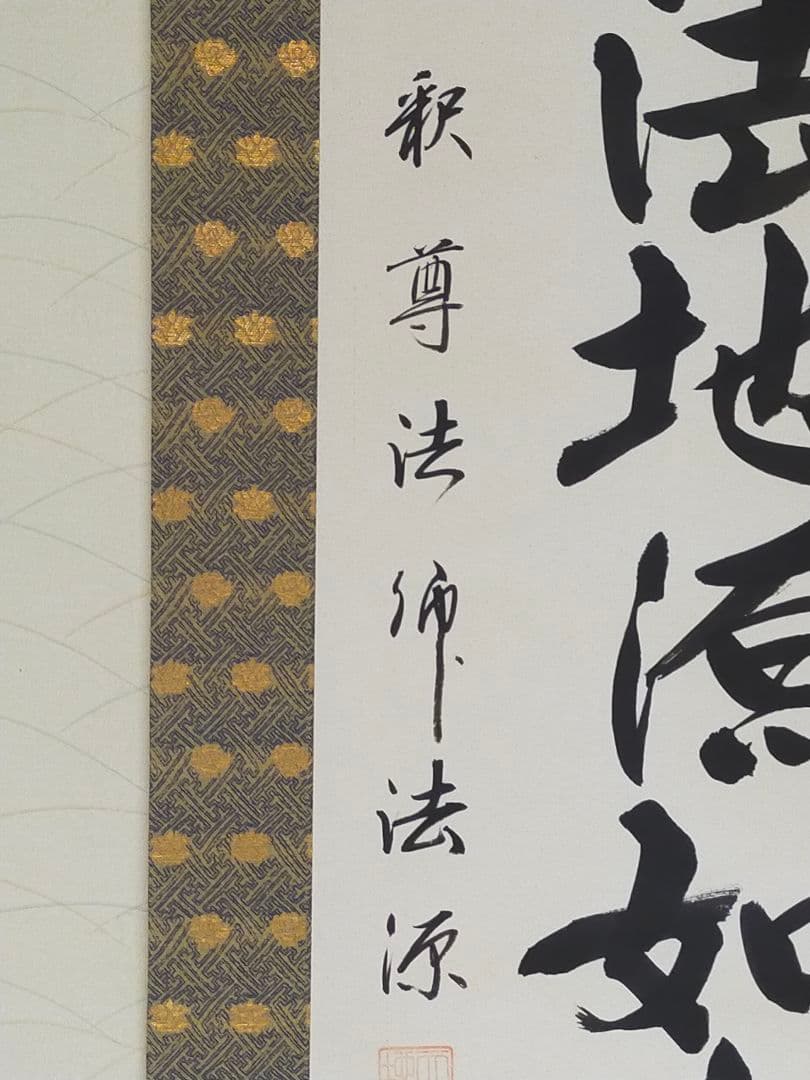 法地源如
釈尊法師法源